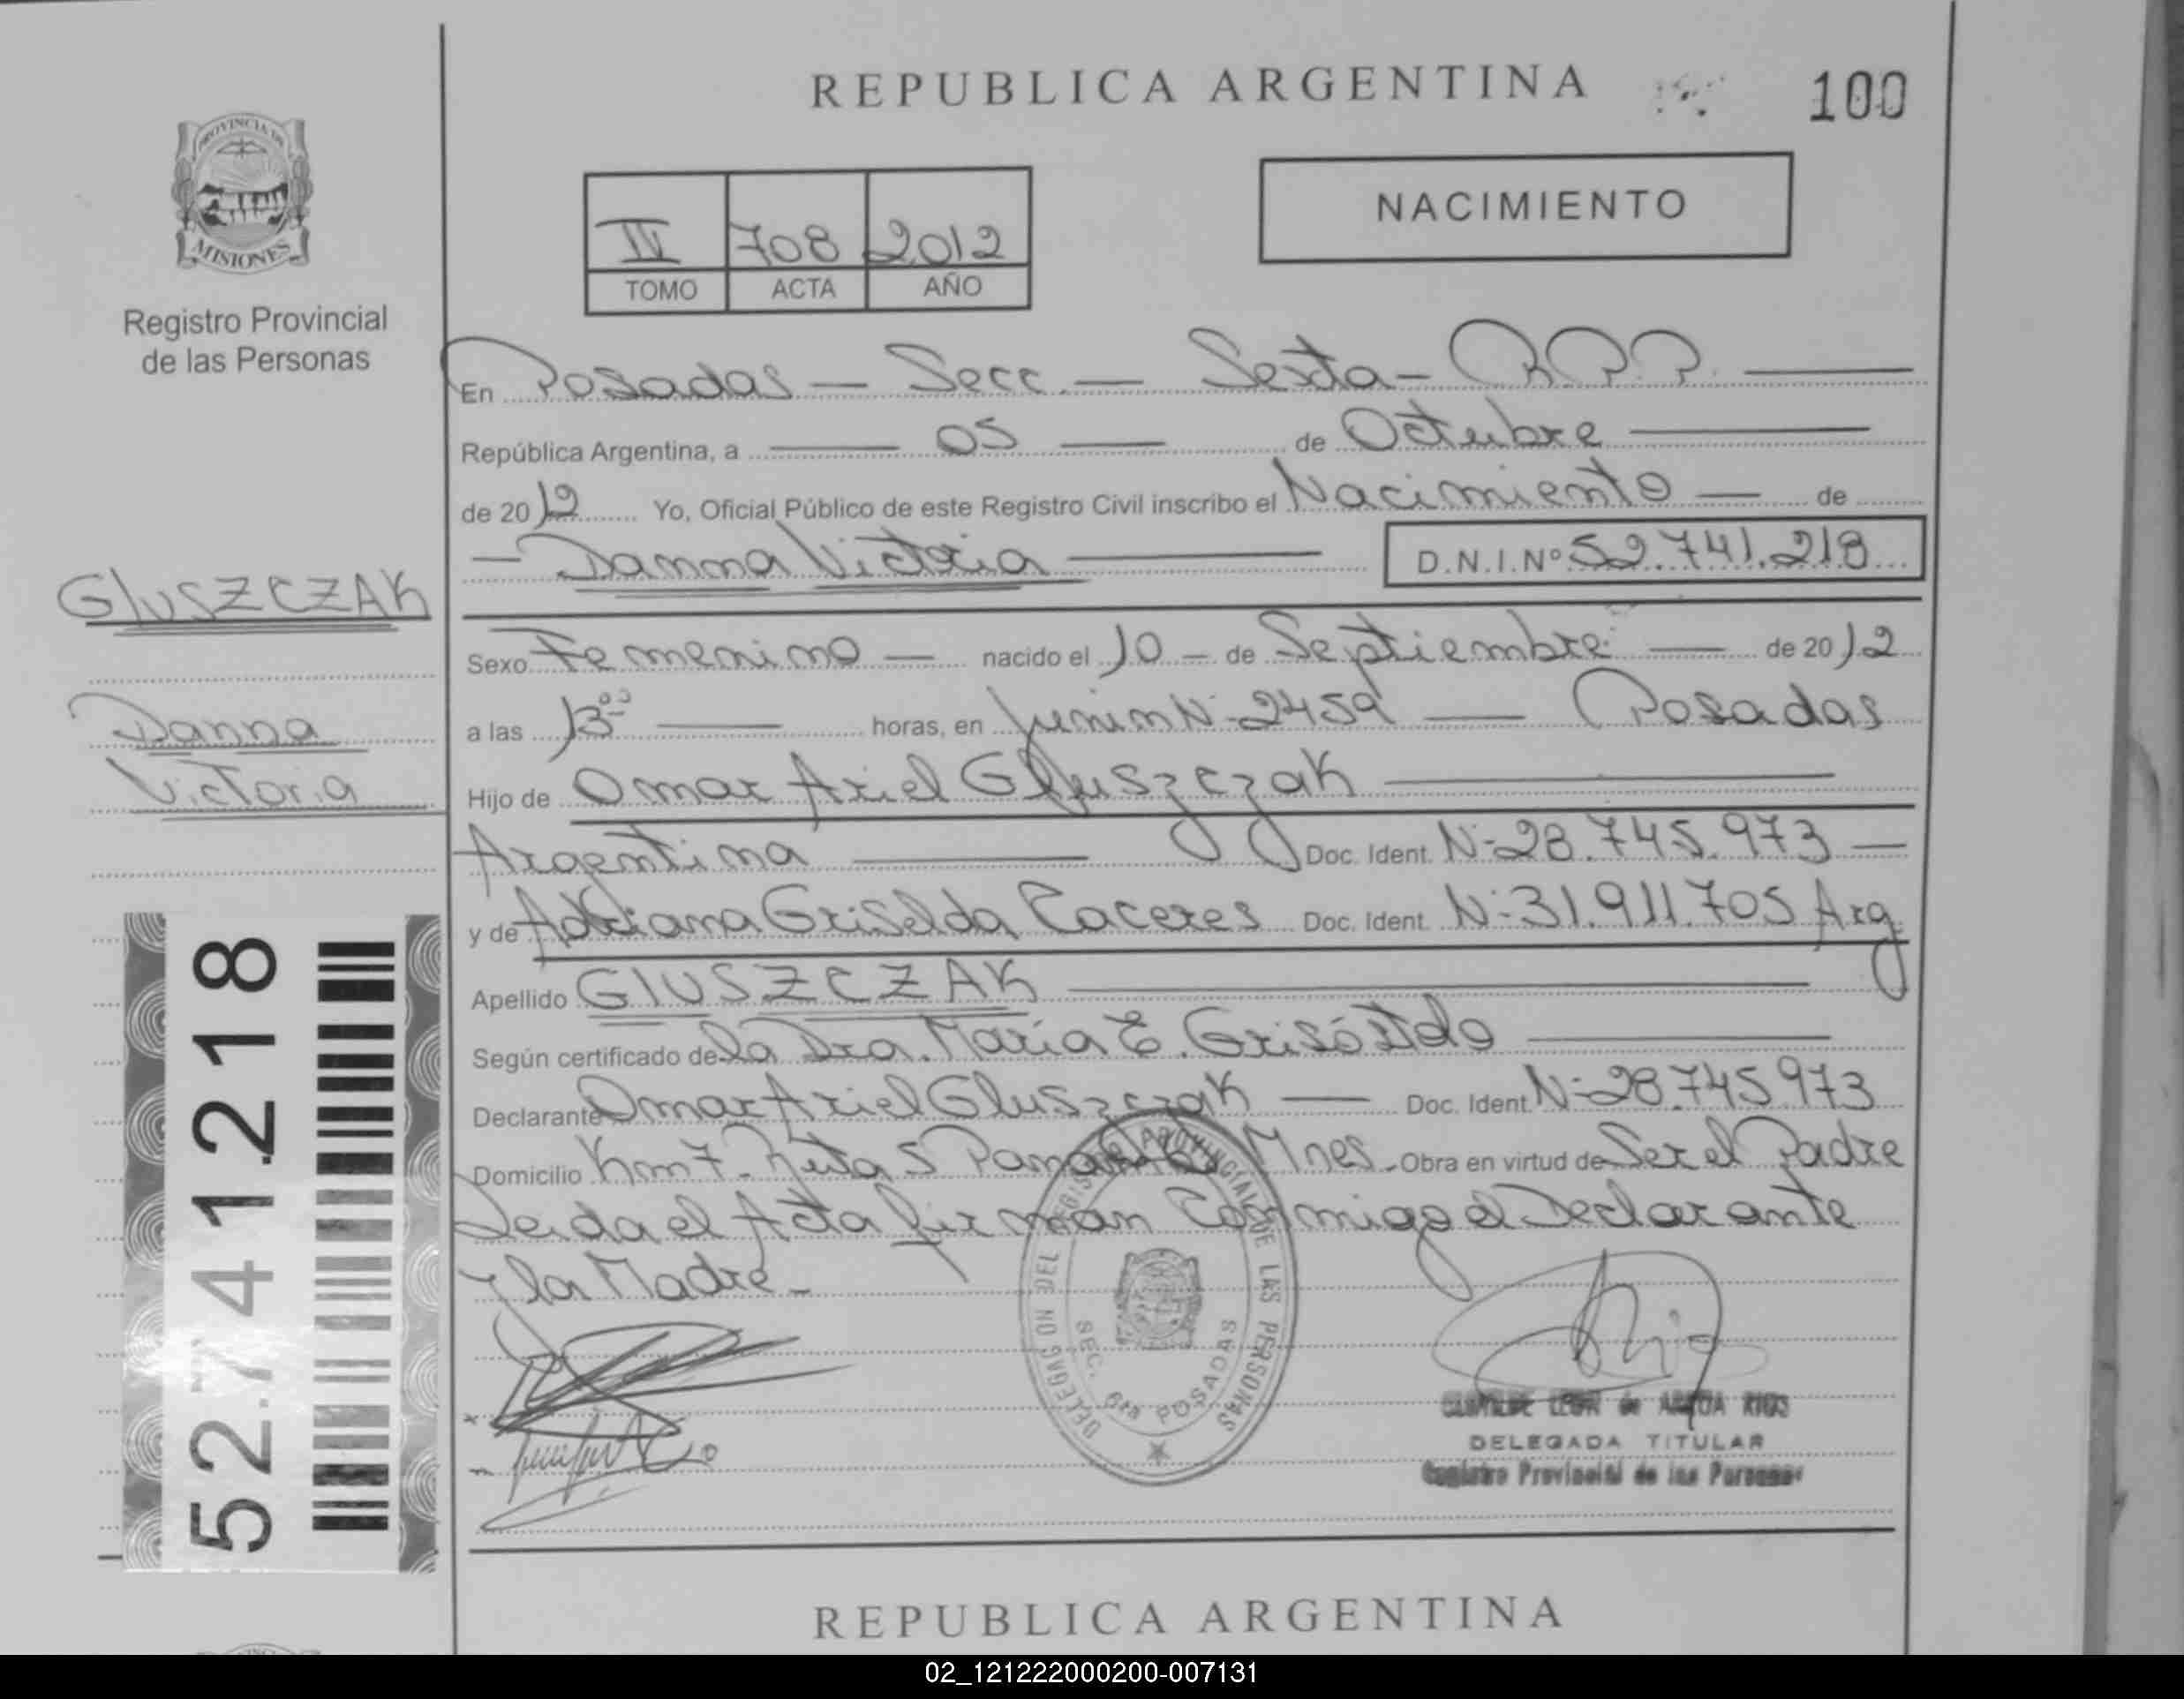 REPUBLICA ARGENTINA
100
PROVINCIA DE
MISIONES
Registro Provincial
de las Personas
IV 708 2012
TOMO ACTA AÑO
NACIMIENTO
En Posadas — Secc. — Sexta - R.P.P.
República Argentina, a — 05 — de Octubre
de 2012 Yo, Oficial Público de este Registro Civil inscribo el Nacimiento — de
— Danna Victoria — D.N.I. Nº 52.741.218
GLUSZCZAK
Danna
Victoria
Sexo Femenino — nacido el 10 — de Septiembre — de 2012
a las 13 00 — horas, en Junin Nº 2459 — Posadas
Hijo de Omar Ariel Gluszczak
Argentina — Doc. Ident. Nº 28.745.973 —
y de Adriana Griselda Caceres Doc. Ident. Nº 31.911.705 Arg
Apellido GLUSZCZAK
Según certificado de la Dra. María E.
Declarante Omar Ariel Gluszczak — Doc. Ident. Nº 28.745.973
Domicilio Km 7. Ruta 5 Panambi Mnes. Obra en virtud de Ser el Padre
Leida el Acta firman Conmigo el Declarante
y la Madre -
52.741.218
REGISTRO PROVINCIAL DE LAS PERSONAS
SEC. 6ta POSADAS
DELEGADA TITULAR
Registro Provincial de las Personas
REPUBLICA ARGENTINA
02_121222000200-007131